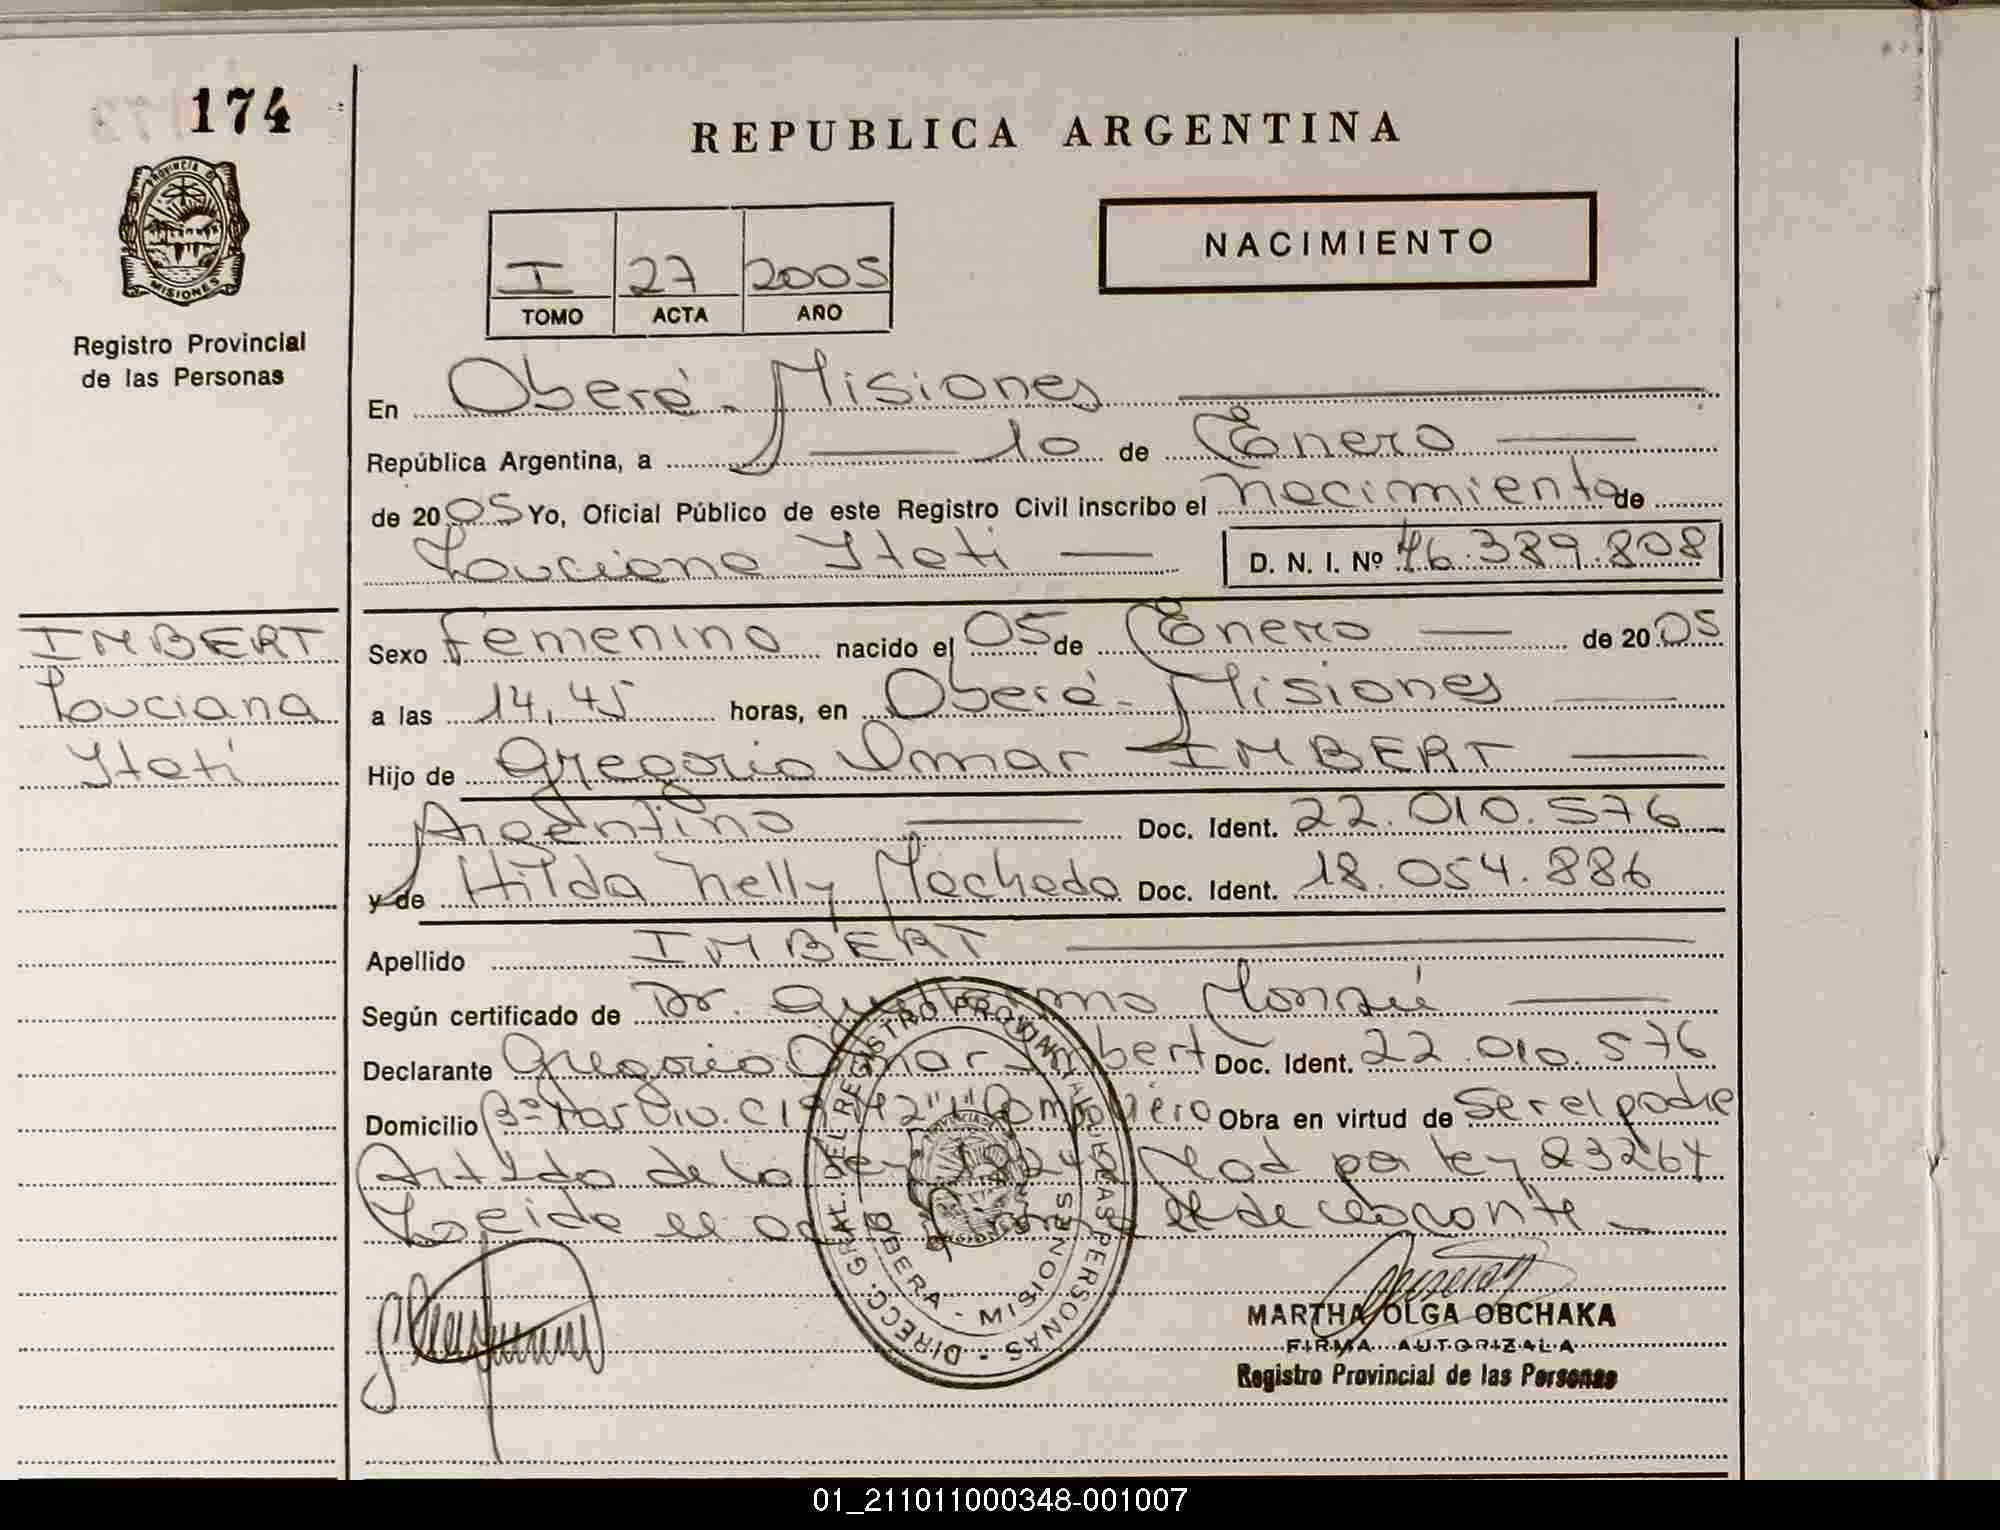 174
REPUBLICA ARGENTINA
PROVINCIA D
MISIONES
Registro Provincial
de las Personas
I 27 2005
TOMO ACTA AÑO
NACIMIENTO
En Oberá - Misiones
República Argentina, a 10 de Enero
de 2005 Yo, Oficial Público de este Registro Civil inscribo el nacimiento de
Louciana Itatí D. N. I. Nº 46.389.808
IMBERT
Louciana
Itatí
Sexo femenino nacido el 05 de Enero de 2005
a las 14,45 horas, en Oberá - Misiones
Hijo de Gregorio Omar IMBERT
Argentino Doc. Ident. 22.010.576
y de Hilda Nelly Machado Doc. Ident. 18.054.886
Apellido IMBERT
Según certificado de Dr. Guillermo
Declarante Gregorio Omar Imbert Doc. Ident. 22.010.576
Domicilio Obra en virtud de ser el padre
de la Ley Mod por Ley 23264
Leida el declarante
DIRECC. GRAL. DEL REGISTRO PROVINCIAL DE LAS PERSONAS
OBERA - MISIONES
MARTHA OLGA OBCHAKA
FIRMA AUTORIZALA
Registro Provincial de las Personas
01_211011000348-001007